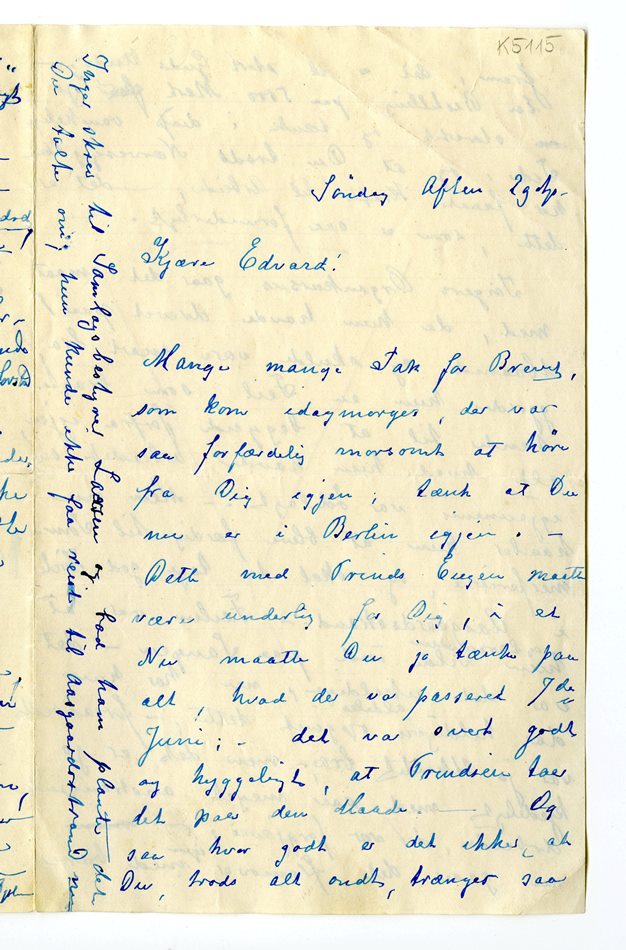 K5115
Söndag Aften 29de
Kjære Edvard!
Mange mange Tak for Brevet,
som kom idagmorges, der var
saa forfærdelig morsomt at höre
fra Dig igjen; tænk at Du
nu er i Berlin igjen. –
Dette med Prinds Eugen maatte
være underlig for Dig, i et
Nu maatte Du jo tænke paa
alt, hvad der va passeret 7de
Juni; – det va svært godt
og hyggeligt, at Prindsen toer
det paa den Maade. — Og
saa hvor godt er det ikke, at
Du, trods alt ondt, trænger saa
Inger skrev til Samlagsbestyrer Laasen og bad ham plante det
Du talte om; hun kunde ikke faa reist til Aasgaardstrand nu